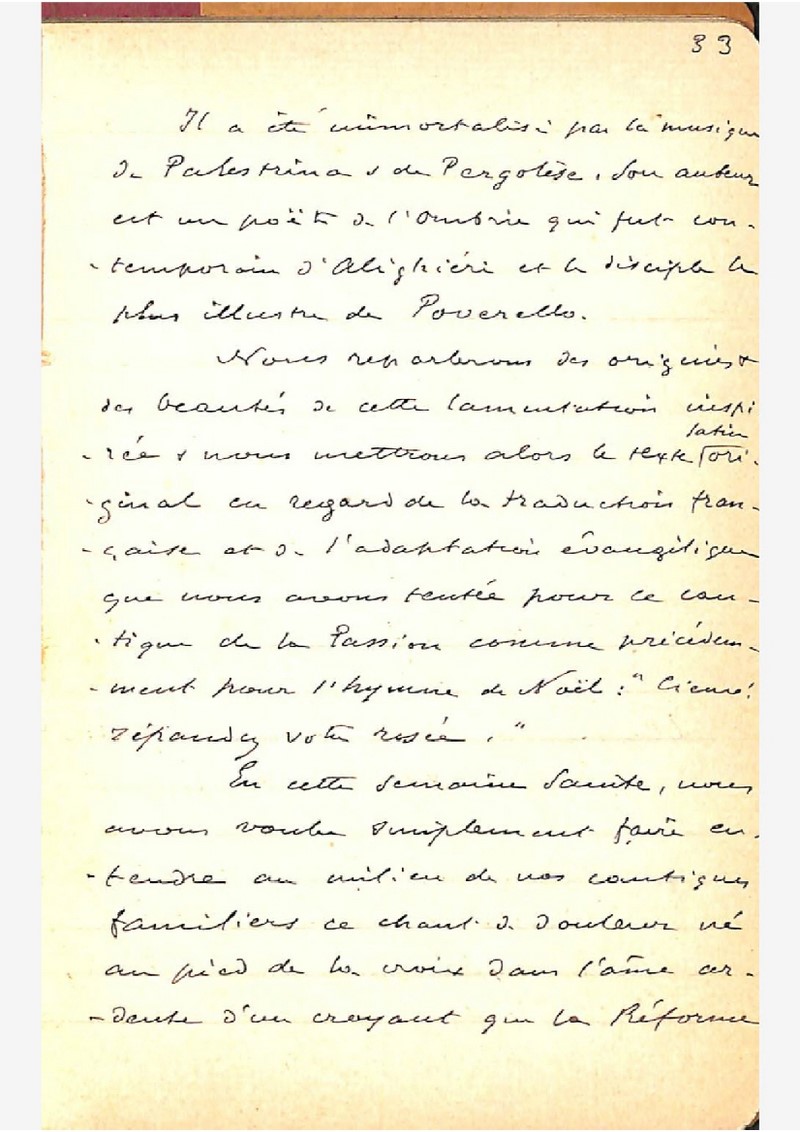 33
Il a été immortalisé par la musique
de Palestrina & de Pergolèse. Son auteur
est un poëte de l'Ombrie qui fut con-
-temporain d'Alighiéri et le disciple le
plus illustre du Poverello.
Nous reparlerons des origines &
des beautés de cette lamentation inspi
latin
-rée & nous mettrons alors le texte ori-
-ginal en regard de la traduction fran-
-çaise et de l'adaptation évangélique
que nous avons tentée pour ce can-
-tique de la Passion comme précédem-
-ment pour l'hymne de Noël : "Cieux!
répandez votre rosée."
En cette semaine Sainte, nous
avons voulu simplement faire en-
-tendre au milieu de nos cantiques
familiers ce chant de douleur né
au pied de la croix dans l'âme ar-
-dente d'un croyant que la Réforme